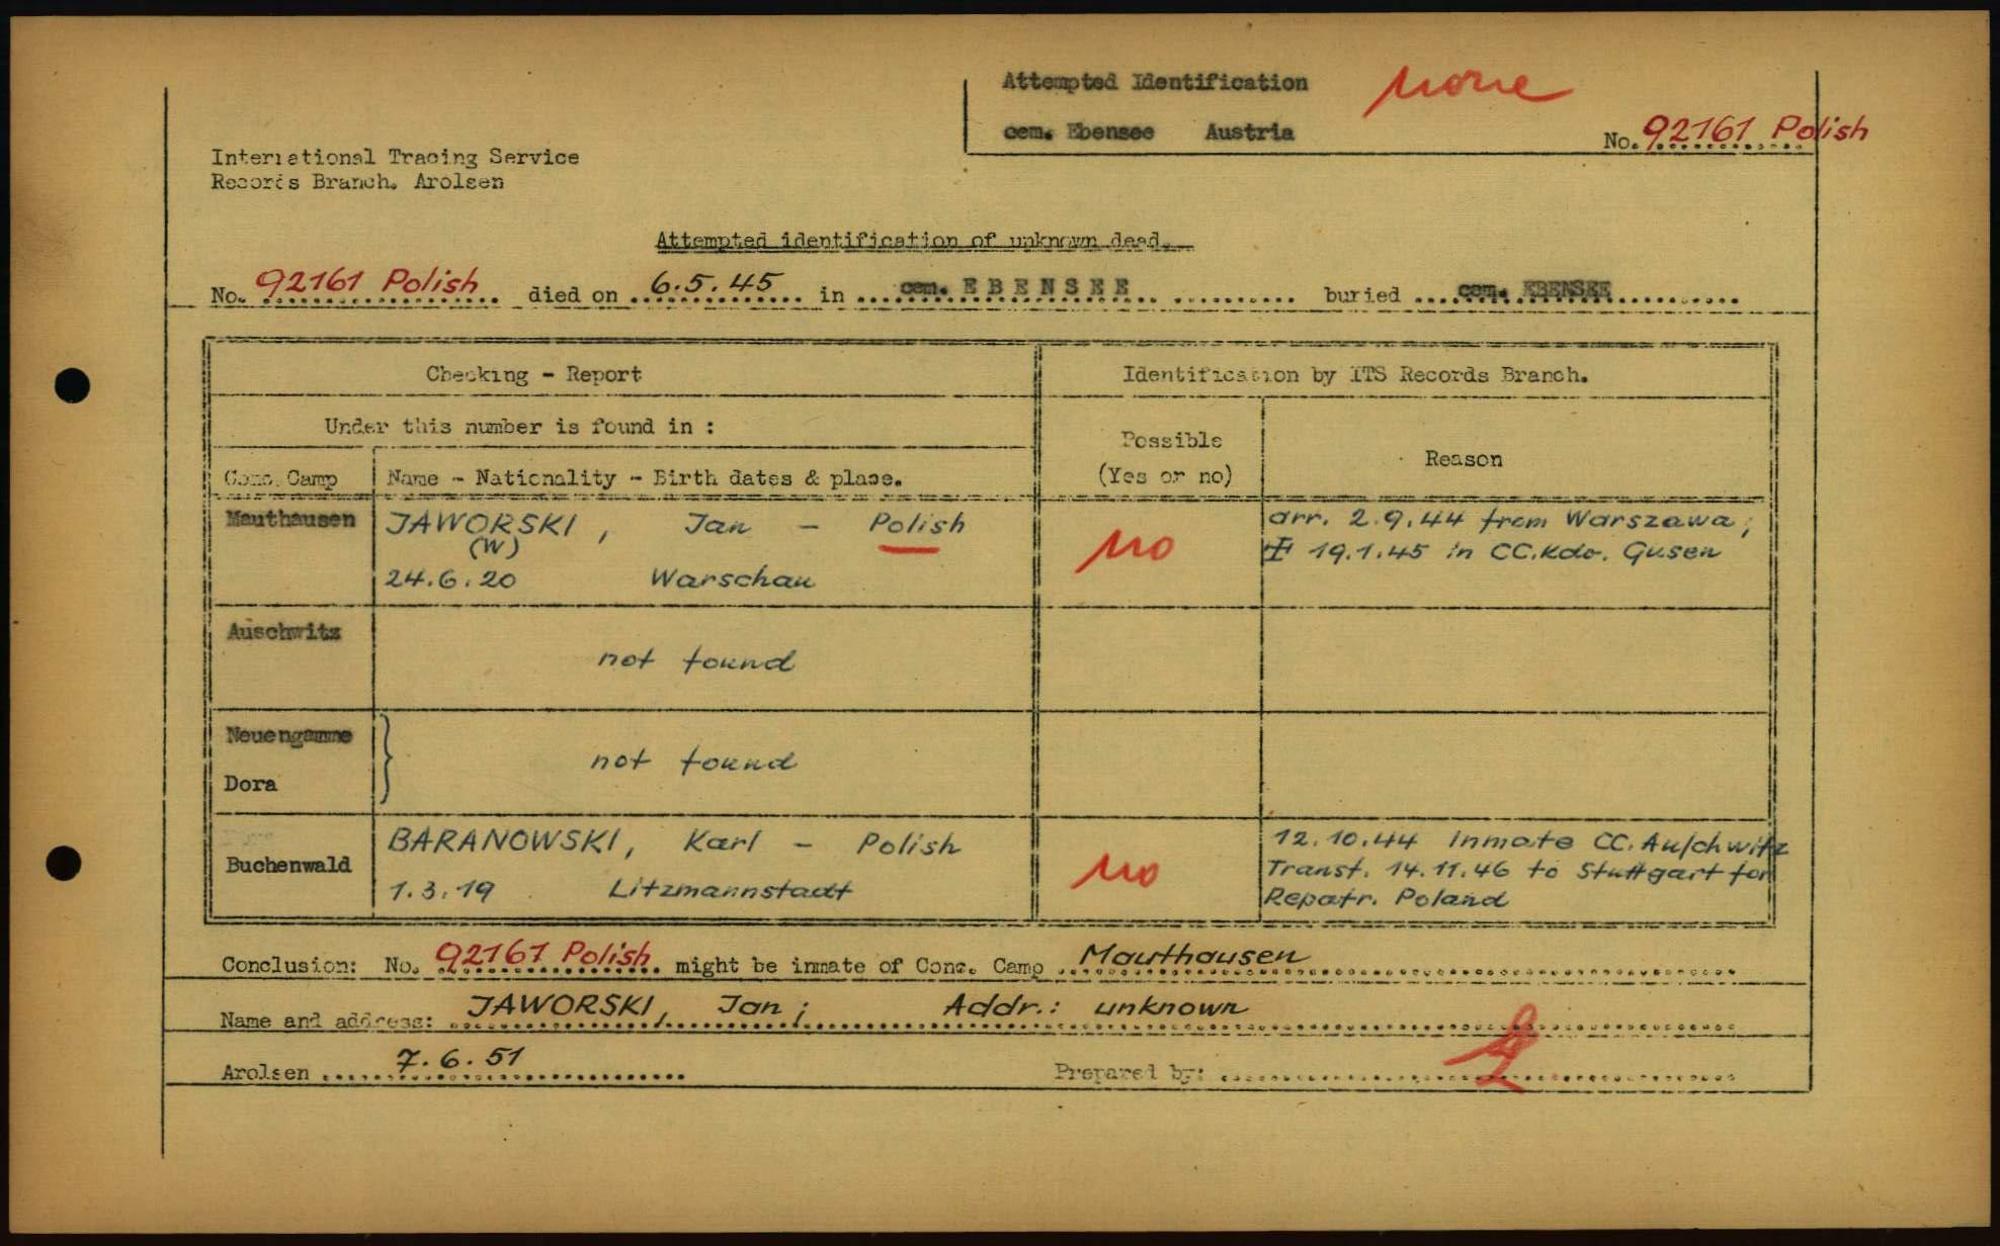 Attempted Identification none
cem. Ebensee Austria No. 92161 Polish
International Tracing Service
Records Branch. Arolsen
Attempted identification of unknown dead.
No. 92161 Polish died on 6.5.45 in cem. EBENSEE buried cem. EBENSEE
Checking - Report
Identification by ITS Records Branch.
Under this number is found in :
Possible
(Yes or no)
Reason
Conc. Camp Name - Nationality - Birth dates & place.
Mauthausen JAWORSKI, Jan - Polish
(W)
24.6.20 Warschau
no
arr. 2.9.44 from Warszawa;
‡ 19.1.45 in CC.Kdo. Gusen
Auschwitz
not found
Neuengamme
Dora
not found
Buchenwald
BARANOWSKI, Karl - Polish
1.3.19 Litzmannstadt
no
12.10.44 Inmate CC. Auschwitz
Transf. 14.11.46 to Stuttgart for
Repatr. Poland
Conclusion: No. 92161 Polish might be inmate of Conc. Camp Mauthausen
Name and address: JAWORSKI, Jan; Addr.: unknown
Arolsen 7.6.51 Prepared by: